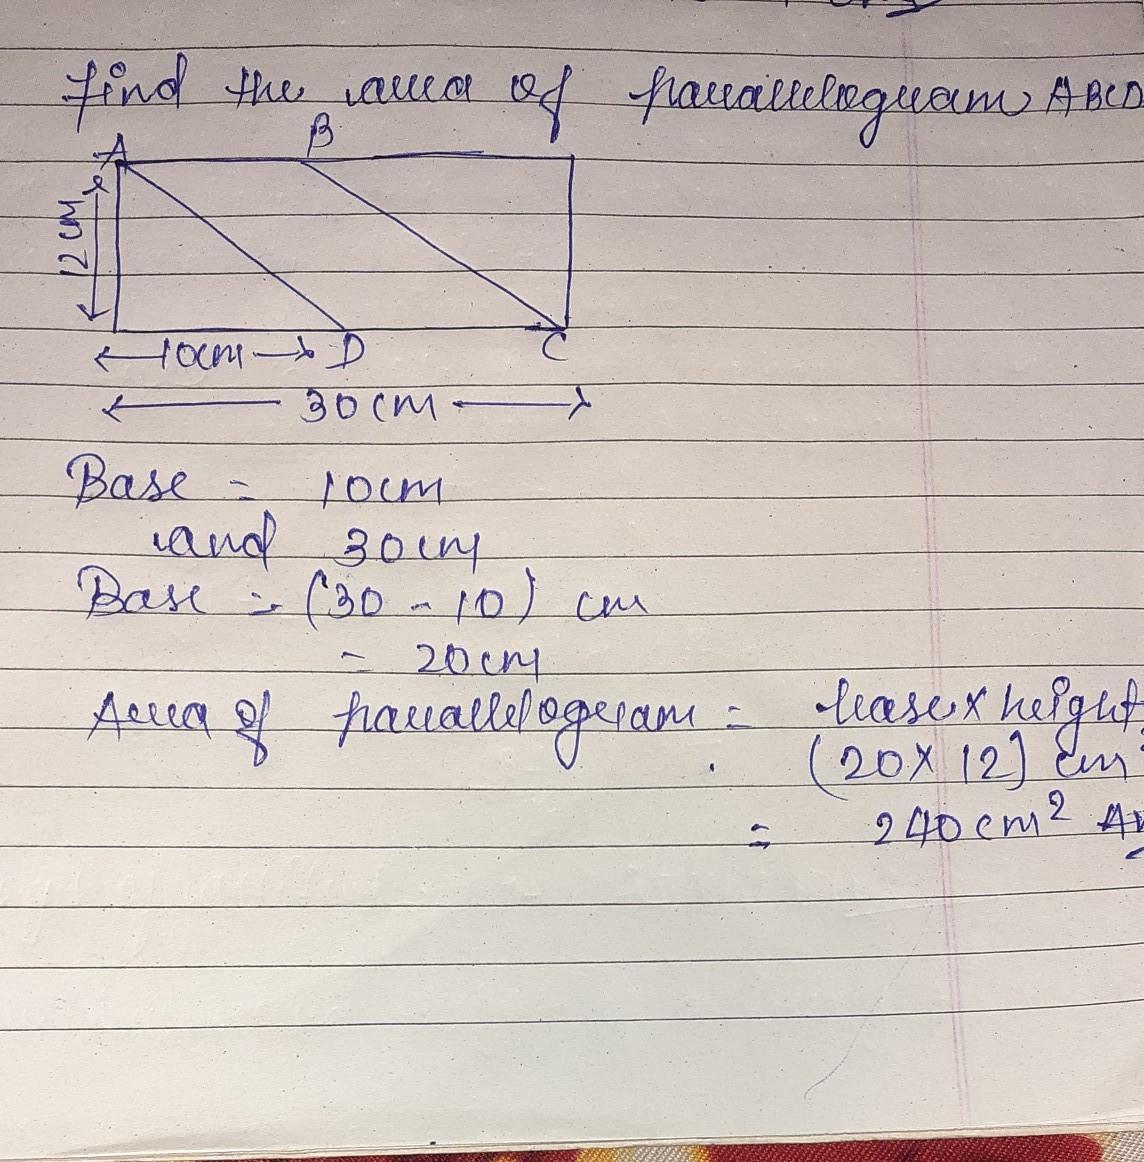 find the area of parallelogram ABCD
A
B
12cm
10cm
D
C
30cm
Base = 10cm
and 30cm
Base = (30 - 10) cm
= 20cm
Area of parallelogram = base x height
(20 x 12) cm
= 240cm²